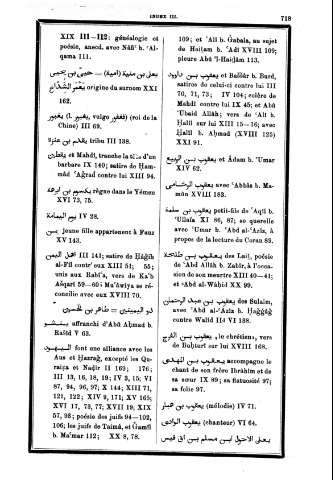 INDEX III.
718
XIX III—112: généalogie et
poésie, anecd. avec Nâfi' b. 'Al-
qama 111.
يعلى بن منية (امية) — حيى بن يحيى
يعمر الشداخ origine du surnom XXI
162.
يغبور (l. فغفور, vulgo يغفور) (roi de la
Chine) III 69.
يقدم بن عنزة tribu III 138.
يقطين et Mahdî, tranche la tête d'un
barbare IX 140; satire de Ham-
mâd 'Ağrad contre lui XIII 94.
يكسوم بن ابرهة règne dans le Yémen
XVI 73, 75.
اليمامة IV 28.
يمن jeune fille appartenant à Fauz
XV 143.
اهل اليمن III 141; satire de Ḥâġib
al-Fîl contr'eux XIII 51; 55;
unis aux Rabî'a, vers de Ka'b
Ašqarî 59—60; Mu'âwiya se ré-
concilie avec eux XVIII 70.
ذو اليمينين = طاهر بن الحسين
affranchi d'Abû Aḥmad b.
Rašîd V 63.
اليهود font une alliance avec les
Aus et Ḫazraġ, excepté les Qu-
raiẓa et Naḍîr II 169; 176;
III 13, 16, 18, 19; IV 3, 15; VI
87, 94, 96, 97; X 144; XIII 71,
121, 122; XIV 9, 171; XV 165;
XVI 17, 73, 77; XVII 19; XIX
57, 98; poésie des juifs 94—102,
104; les juifs de Taimâ, et Ġamîl
b. Ma'mar 112; XX 8, 78.
109; et 'Alî b. Ġabala, au sujet
de Haiṯam b. 'Adî XVIII 109;
pleure Abû 'l-Haiḏâm 113.
يعقوب بن داوود et Baššâr b. Burd,
satires de celui-ci contre lui III
70, 71, 73; IV 104; colère de
Mahdî contre lui IX 45; et Abû
'Ubaid Allâh; vers de 'Alî b.
Ḫalîl sur lui XIII 15—16; avec
Ḫalîl b. Aḥmad (XVIII 125)
XXI 91.
يعقوب بن الربيع et Âdam b. 'Umar
XIV 62.
avec 'Abbâs b. Ma-
mûn XVIII 185.
يعقوب بن سلمة petit-fils de 'Aqîl b.
'Ullafa XI 86, 87; se querelle
avec 'Umar b. 'Abd al-'Azîz, à
propos de la lecture du Coran 88.
يعقوب بن طلحة des Laiṯ, poésie
de 'Abd Allâh b. Zabîr, à l'occa-
sion de son meurtre XIII 40—41;
et 'Abd al-Wâhid XX 99.
يعقوب بن عبد الرحمن des Sulaim,
avec 'Abd al-'Azîz b. Ḥaġġâġ
contre Walîd II₄ VI 138.
يعقوب بن الفرج le chrétien, vers
de Buḥturî sur lui XVIII 168.
يعقوب بن المهدى accompagne le
chant de son frère Ibrâhîm et de
sa sœur IX 89; sa flatuosité 97;
sa folie 97.
يعقوب بن هبار (mélodie) IV 71.
يعقوب الوادى (chanteur) VI 64.
يعلى الاحول بن مسلم بن ابى قيس